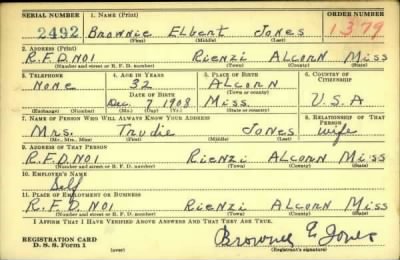 SERIAL NUMBER 1. NAME (Print) ORDER NUMBER
2492 Brownie Elbert Jones 1379
(First) (Middle) (Last)
2. ADDRESS (Print)
R.F.D. NO1 Rienzi Alcorn Miss
(Number and street or R. F. D. number) (Town) (County) (State)
3. TELEPHONE 4. AGE IN YEARS 5. PLACE OF BIRTH 6. COUNTRY OF CITIZENSHIP
None 32 Alcorn
DATE OF BIRTH (Town or county)
Dec. 7, 1908 Miss. U.S.A
(Exchange) (Number) (Mo.) (Day) (Yr.) (State or country)
7. NAME OF PERSON WHO WILL ALWAYS KNOW YOUR ADDRESS 8. RELATIONSHIP OF THAT PERSON
Mrs. Trudie Jones wife
(Mr., Mrs., Miss) (First) (Middle) (Last)
9. ADDRESS OF THAT PERSON
R.F.D. NO1 Rienzi Alcorn Miss
(Number and street or R. F. D. number) (Town) (County) (State)
10. EMPLOYER'S NAME
Self
11. PLACE OF EMPLOYMENT OR BUSINESS
R.F.D. NO1 Rienzi Alcorn Miss
(Number and street or R. F. D. number) (Town) (County) (State)
I AFFIRM THAT I HAVE VERIFIED ABOVE ANSWERS AND THAT THEY ARE TRUE.
REGISTRATION CARD
D. S. S. Form 1 (over) Brownie E Jones
(Registrant's signature)